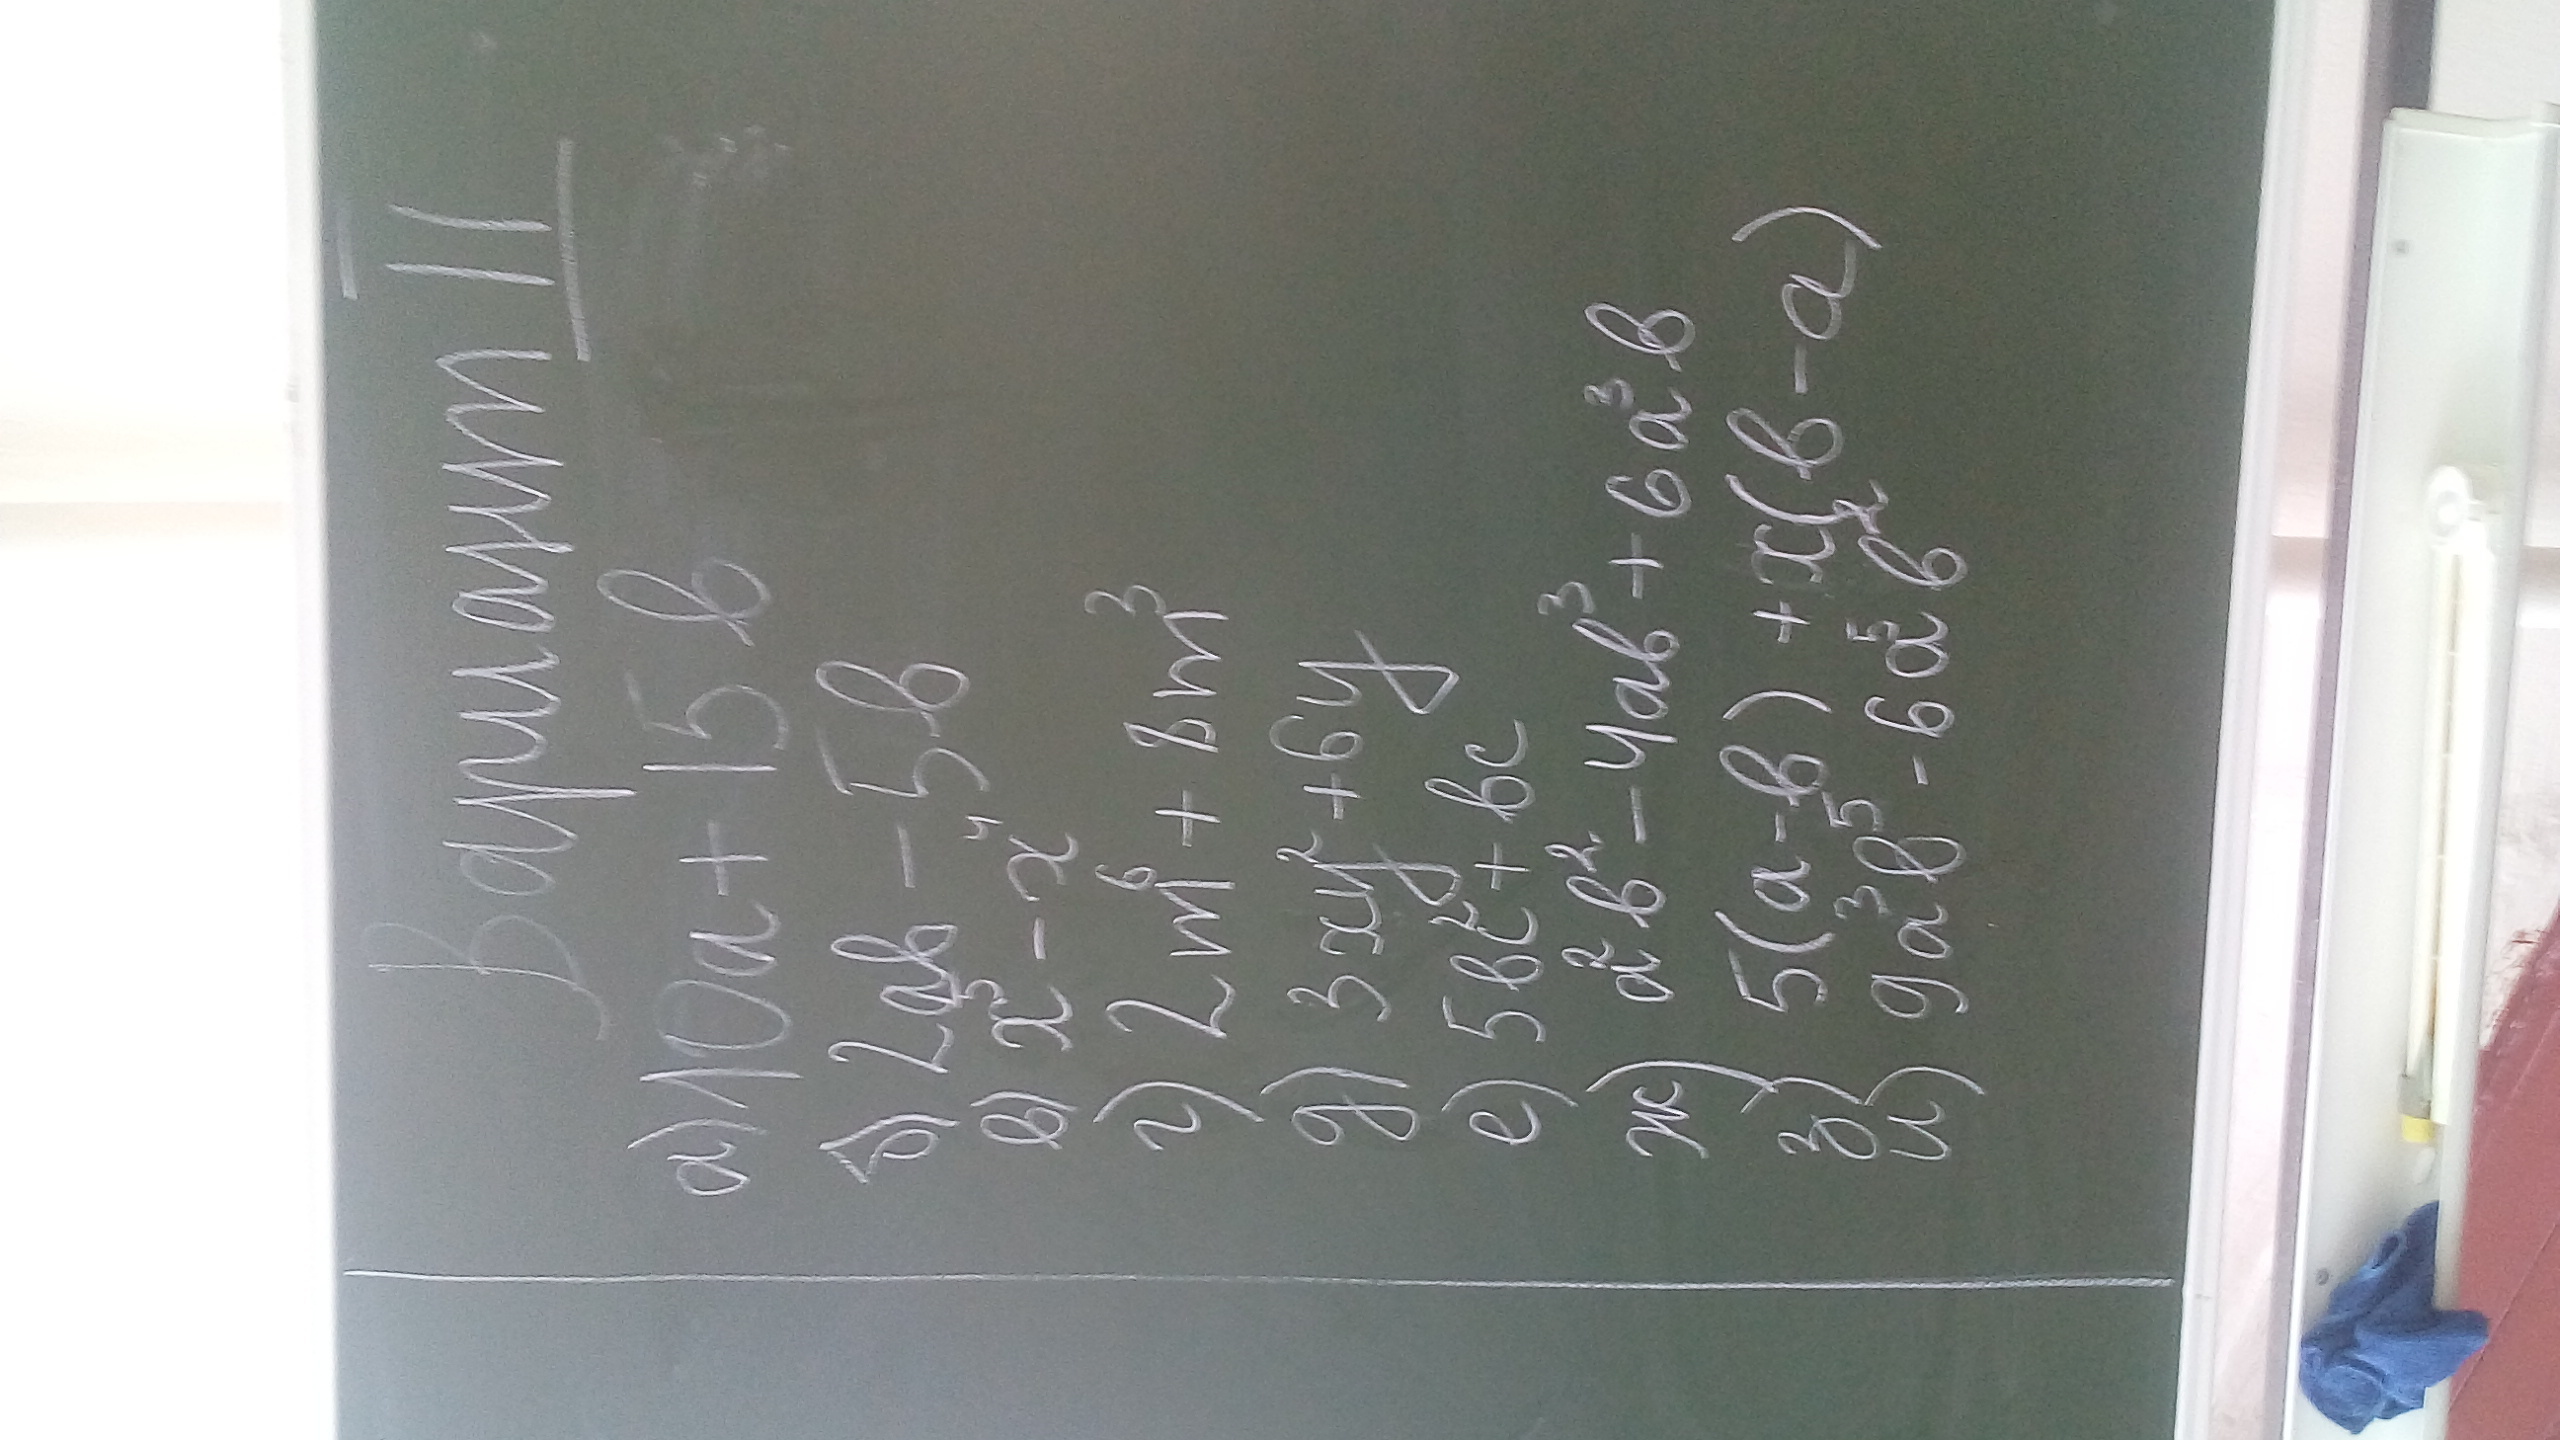 Вариант II
а) 10a + 15b
б) 2ab - 5b
в) x³ - x⁴
г) 2m⁶ + 8m³
д) 3xy² + 6y
е) 5bc² + bc
ж) a²b² - 4ab³ + 6a³b
з) 5(a - b) + x(b - a)
и) 9a³b⁵ - 6a⁵b²